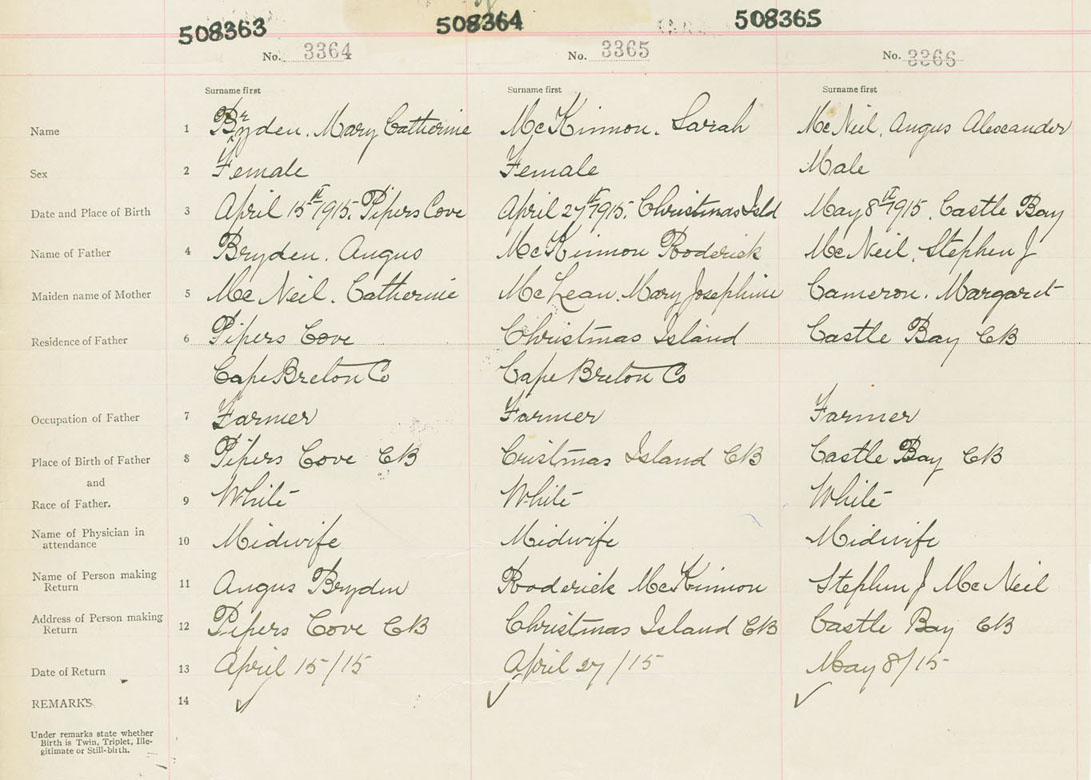 508363 508364 508365
No. 3364 No. 3365 No. 3366
Surname first Surname first Surname first
Name 1 Bryden. Mary Catherine McKinnon. Sarah McNeil, Angus Alexander
Sex 2 Female Female Male
Date and Place of Birth 3 April 15th 1915. Pipers Cove April 27th 1915. Christmas Isld May 8th 1915. Castle Bay
Name of Father 4 Bryden. Angus McKinnon Roderick McNeil, Stephen J
Maiden name of Mother 5 McNeil. Catherine McLean. Mary Josephine Cameron. Margaret
Residence of Father 6 Pipers Cove Christmas Island Castle Bay CB
Cape Breton Co Cape Breton Co
Occupation of Father 7 Farmer Farmer Farmer
Place of Birth of Father 8 Pipers Cove CB Cristmas Island CB Castle Bay CB
and
Race of Father. 9 White White White
Name of Physician in
attendance 10 Midwife Midwife Midwife
Name of Person making
Return 11 Angus Bryden Roderick McKinnon Stephen J McNeil
Address of Person making
Return 12 Pipers Cove CB Christmas Island CB Castle Bay CB
Date of Return 13 April 15/15 April 27/15 May 8/15
REMARKS. 14 ✓ ✓ ✓
Under remarks state whether
Birth is Twin, Triplet, Ille-
gitimate or Still-birth.